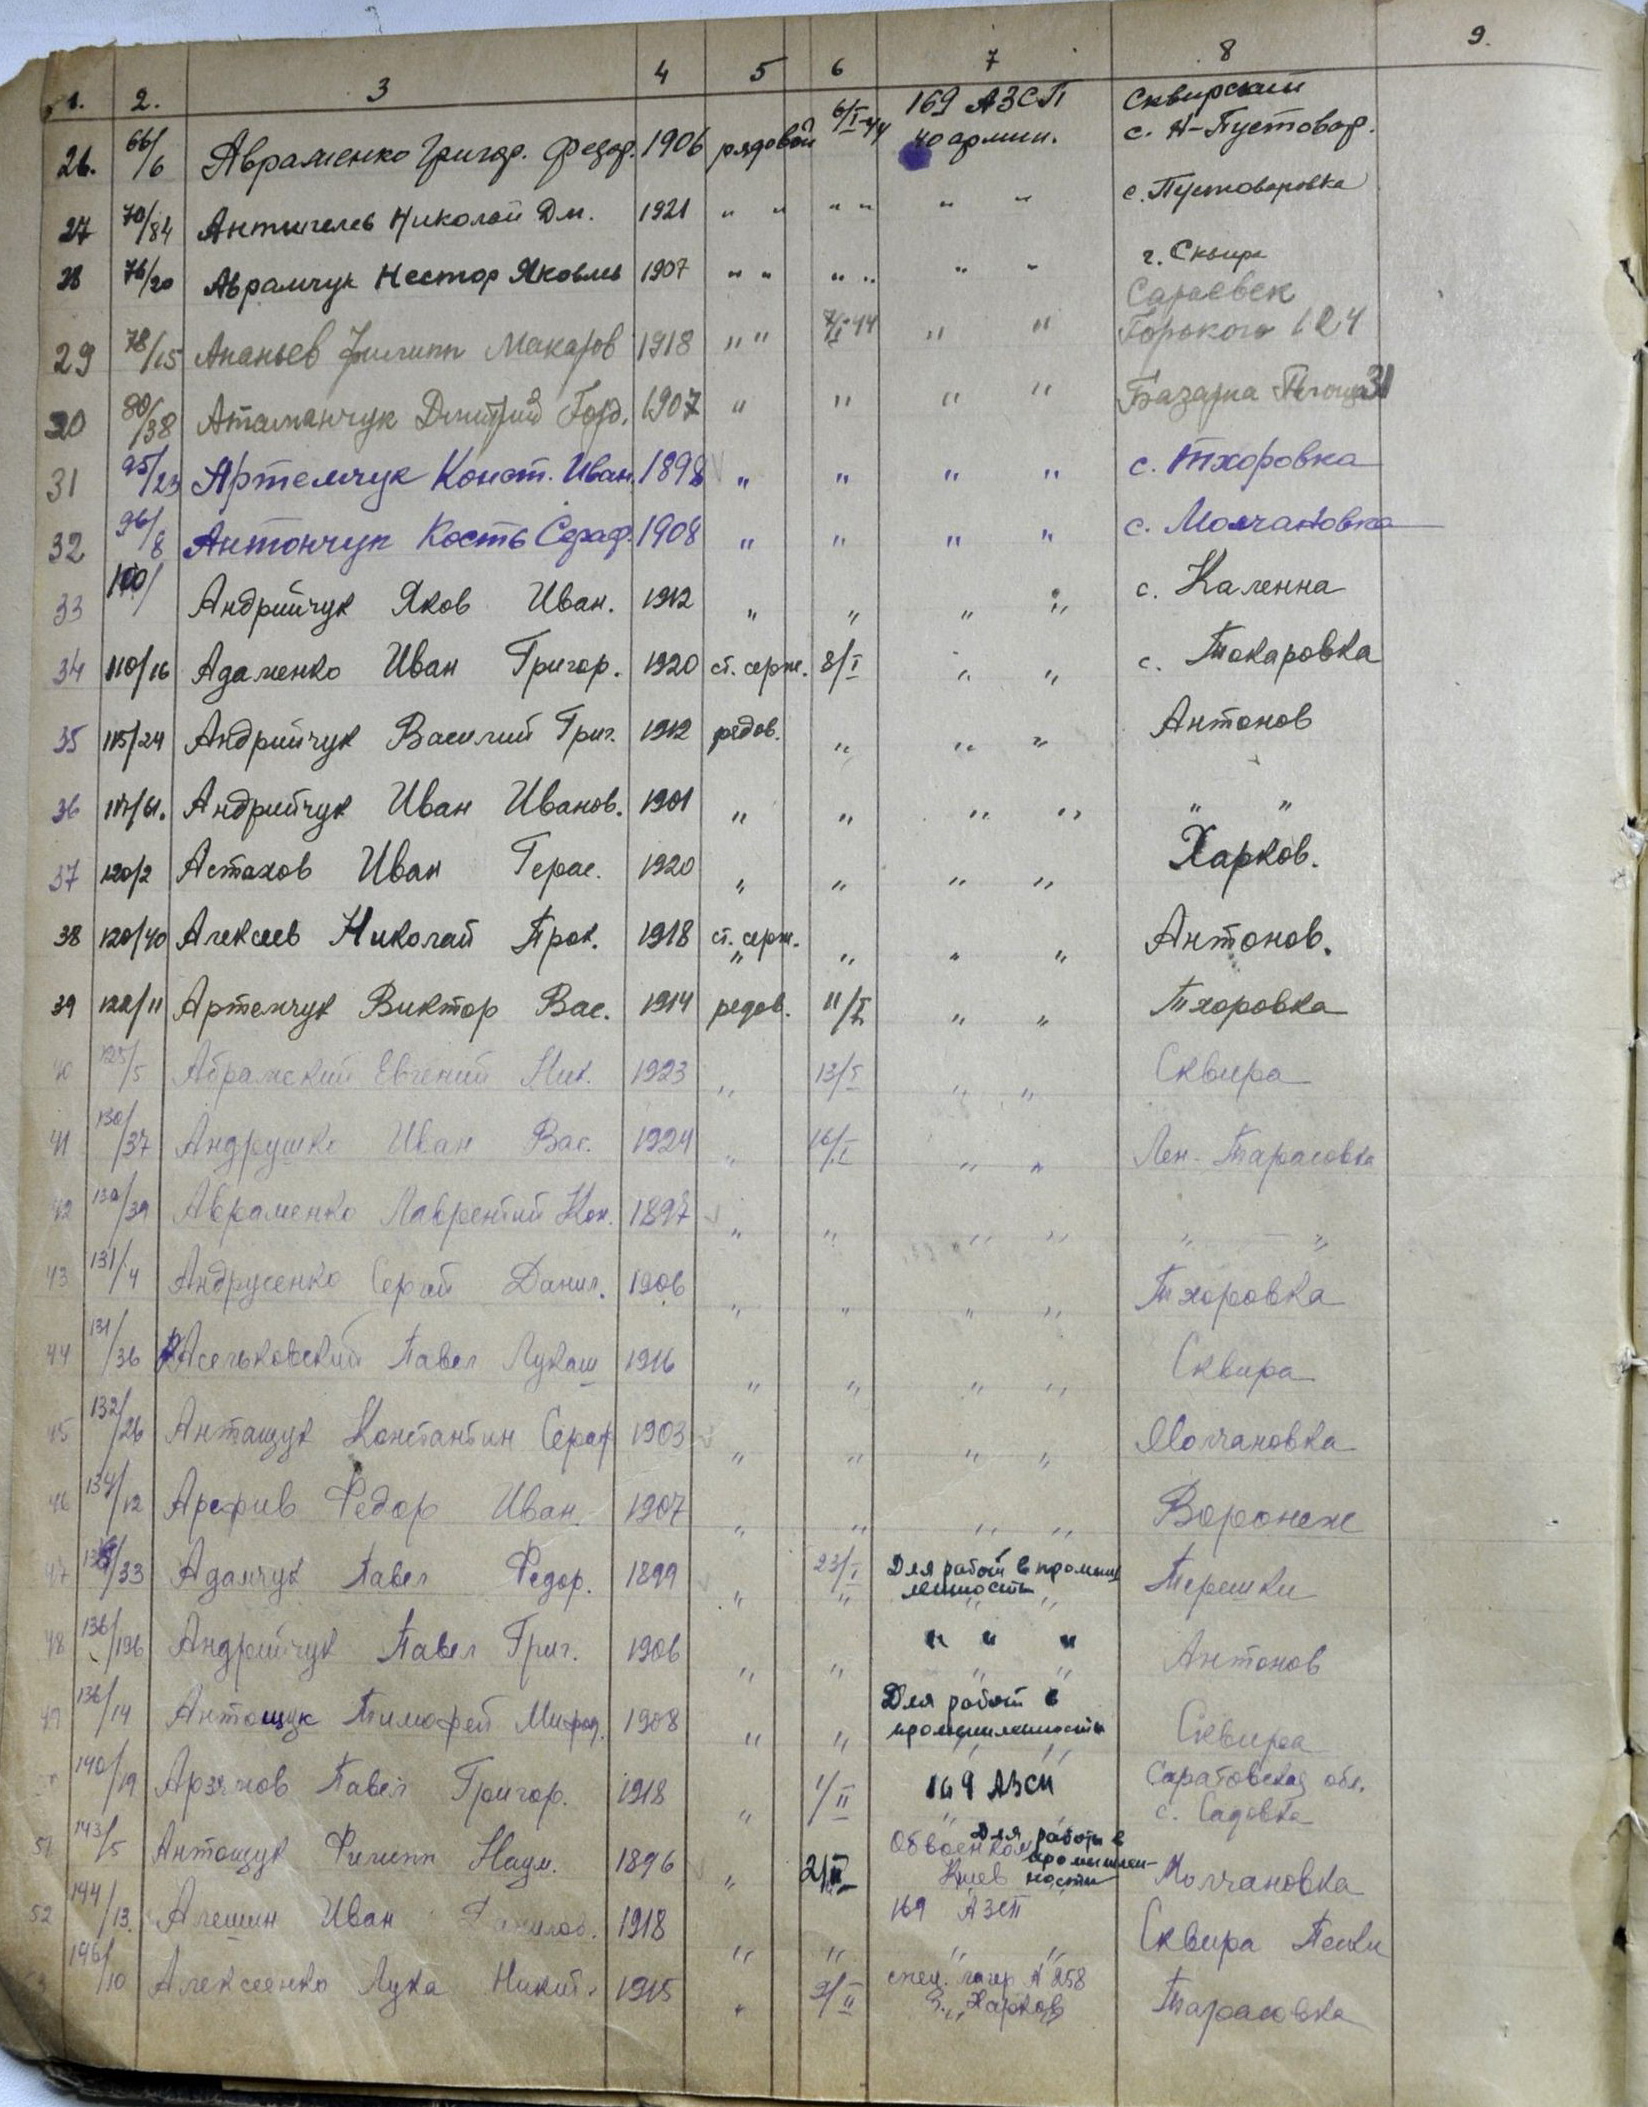 1. 2. 3 4 5 6 7 8 9.
26. 66/6 Авраменко Григор. Федор. 1906 рядовой 6/I-44 169 АЗСП 40 армии. Сквирский с. Н-Пустовар.
27 70/84 Николай Дм. 1921 " " " " " " с. Пустоваровка
28 76/20 Аврамчук Нестор Яковль 1907 " " " " " " г. Сквира
29 78/15 Ананьев Филипп Макаров 1918 " " 7/I-44 " " Горького 124
30 80/38 Атаманчук Дмитрий Горд. 1907 " " " " Базарна 31
31 95/23 Артемчук Конст. Иван. 1898 " " " " с. Тхоровка
32 96/8 Антончук Кость Сераф. 1908 " " " " с. Молчановка
33 100/ Андрийчук Яков Иван. 1912 " " " " с. Каленна
34 110/16 Адаменко Иван Григор. 1920 ст. серж. 8/I " " с. Токаровка
35 115/24 Андрийчук Василий Григ. 1912 рядов. " " " Антонов
36 117/61. Андрийчук Иван Иванов. 1901 " " " " " "
37 120/2 Астахов Иван Герас. 1920 " " " " Харков.
38 120/40 Алексеев Николай Прок. 1918 ст. серж. " " " " Антонов.
39 122/11 Артемчук Виктор Вас. 1914 редов. 11/I " " Тхоровка
40 125/5 Абрамский Евгений Ник. 1923 " 13/I " " Сквира
41 130/37 Андрушко Иван Вас. 1924 " 16/I " " Лен. Тарасовка
42 130/39 Авраменко Лаврентий Кон. 1897 " " " " " — "
43 131/4 Андрусенко Сергей Данил. 1906 " " " " Тхоровка
44 131/36 Павел Лукаш 1916 " " " " Сквира
45 132/26 Антащук Константин Сераф 1903 " " " " Молчановка
46 134/12 Арефив Федор Иван. 1907 " " " " Воронеж
47 /33 Адамчук Павел Федор. 1899 " 23/I Для работ в промыш
" ленности " " Терешки
48 136/136 Андрийчук Павел Григ. 1906 " " " " " Антонов
49 136/14 Антощук Тимофей Мифод. 1908 " " Для работ в
промышленности " " Сквира
140/19 Арзянов Павел Григор. 1918 " 1/II 169 АЗСП " " Саратовская обл.
с. Садовка
51 143/5 Антощук Филипп Наум. 1896 " 2/II Обвоенком Киев Для работы в промышлен-
ности Молчановка
52 144/13. Алешин Иван 1918 " " 169 АЗСП " " Сквира Пески
146/10 Алексеенко Лука Никит. 1915 " 9/II спец. лагер № 258
г. Харков Тарасовка